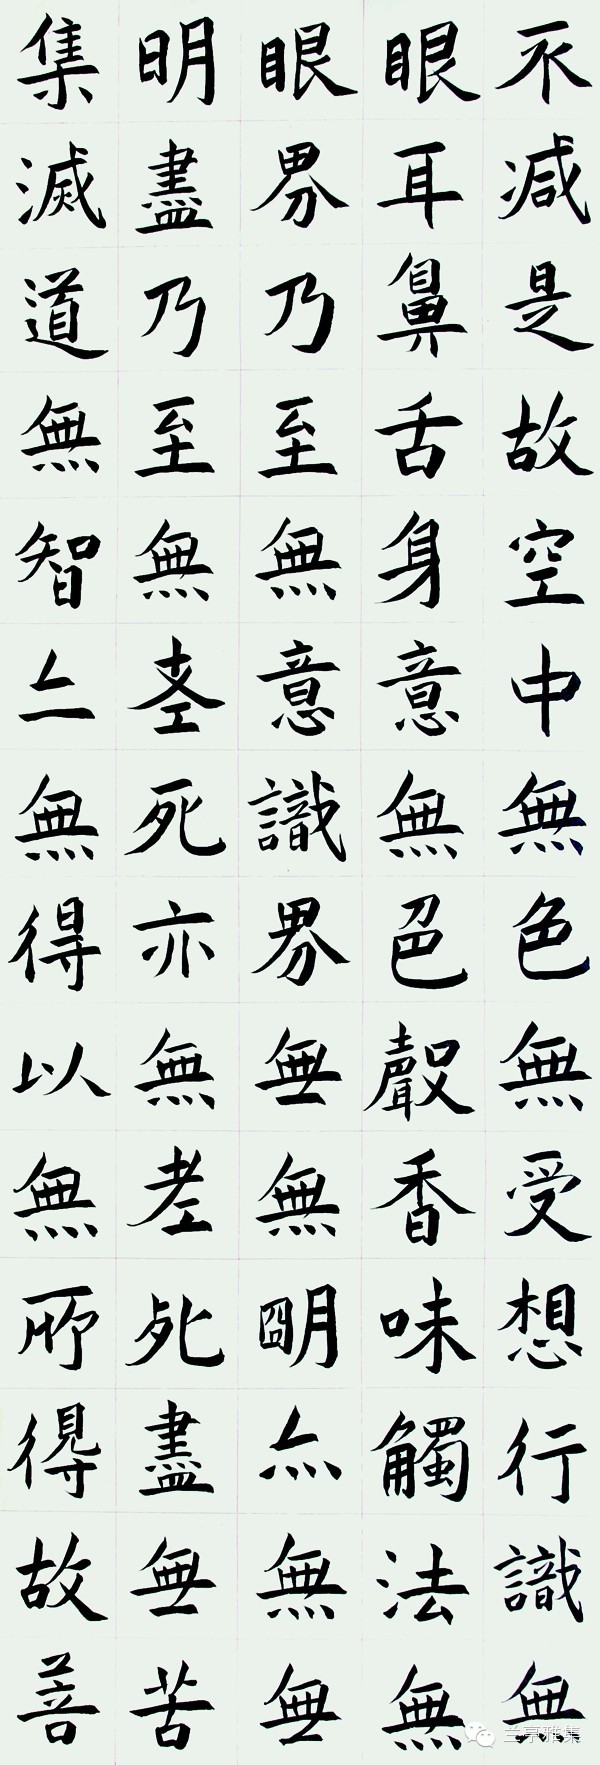 不減是故空中無色無受想行識無
眼耳鼻舌身意無色聲香味觸法無
眼界乃至無意識界無無明亦無無
明盡乃至無老死亦無老死盡無苦
集滅道無智亦無得以無所得故菩
兰亭雅集